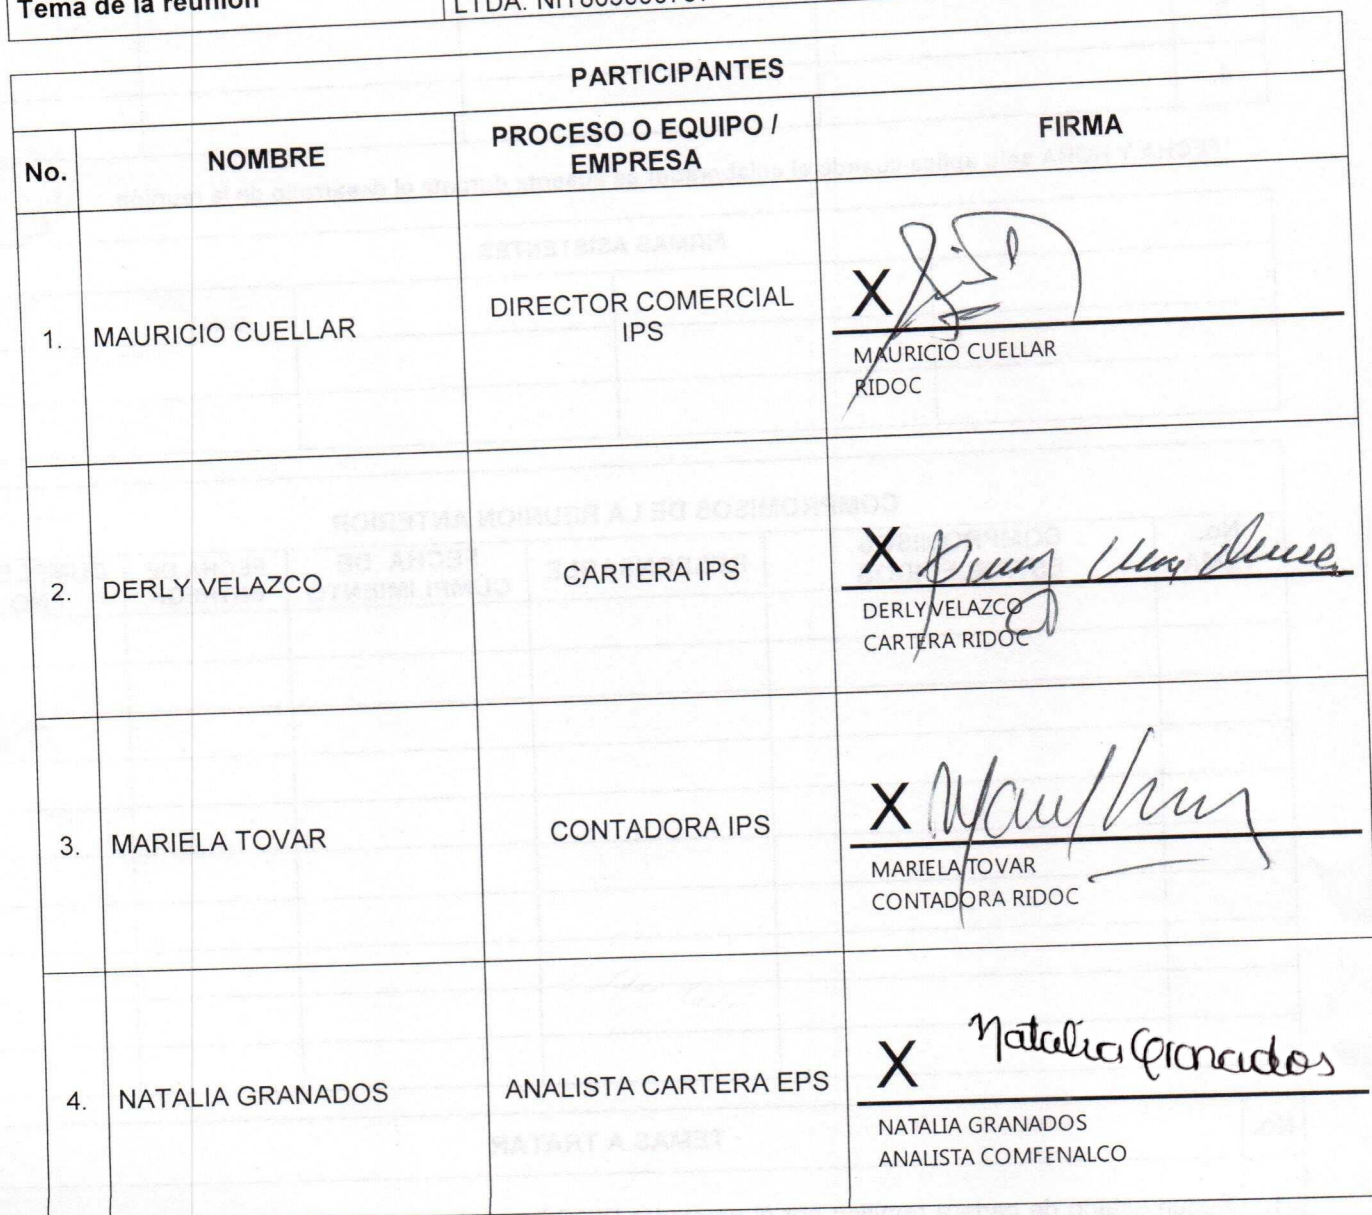 Tema de la reunión
LTDA. NIT
PARTICIPANTES
No.
NOMBRE
PROCESO O EQUIPO /
EMPRESA
FIRMA
1.
MAURICIO CUELLAR
DIRECTOR COMERCIAL
IPS
X
MAURICIO CUELLAR
RIDOC
2.
DERLY VELAZCO
CARTERA IPS
X
DERLY VELAZCO
CARTERA RIDOC
3.
MARIELA TOVAR
CONTADORA IPS
X
MARIELA TOVAR
CONTADORA RIDOC
4.
NATALIA GRANADOS
ANALISTA CARTERA EPS
X Natalia Granados
NATALIA GRANADOS
ANALISTA COMFENALCO